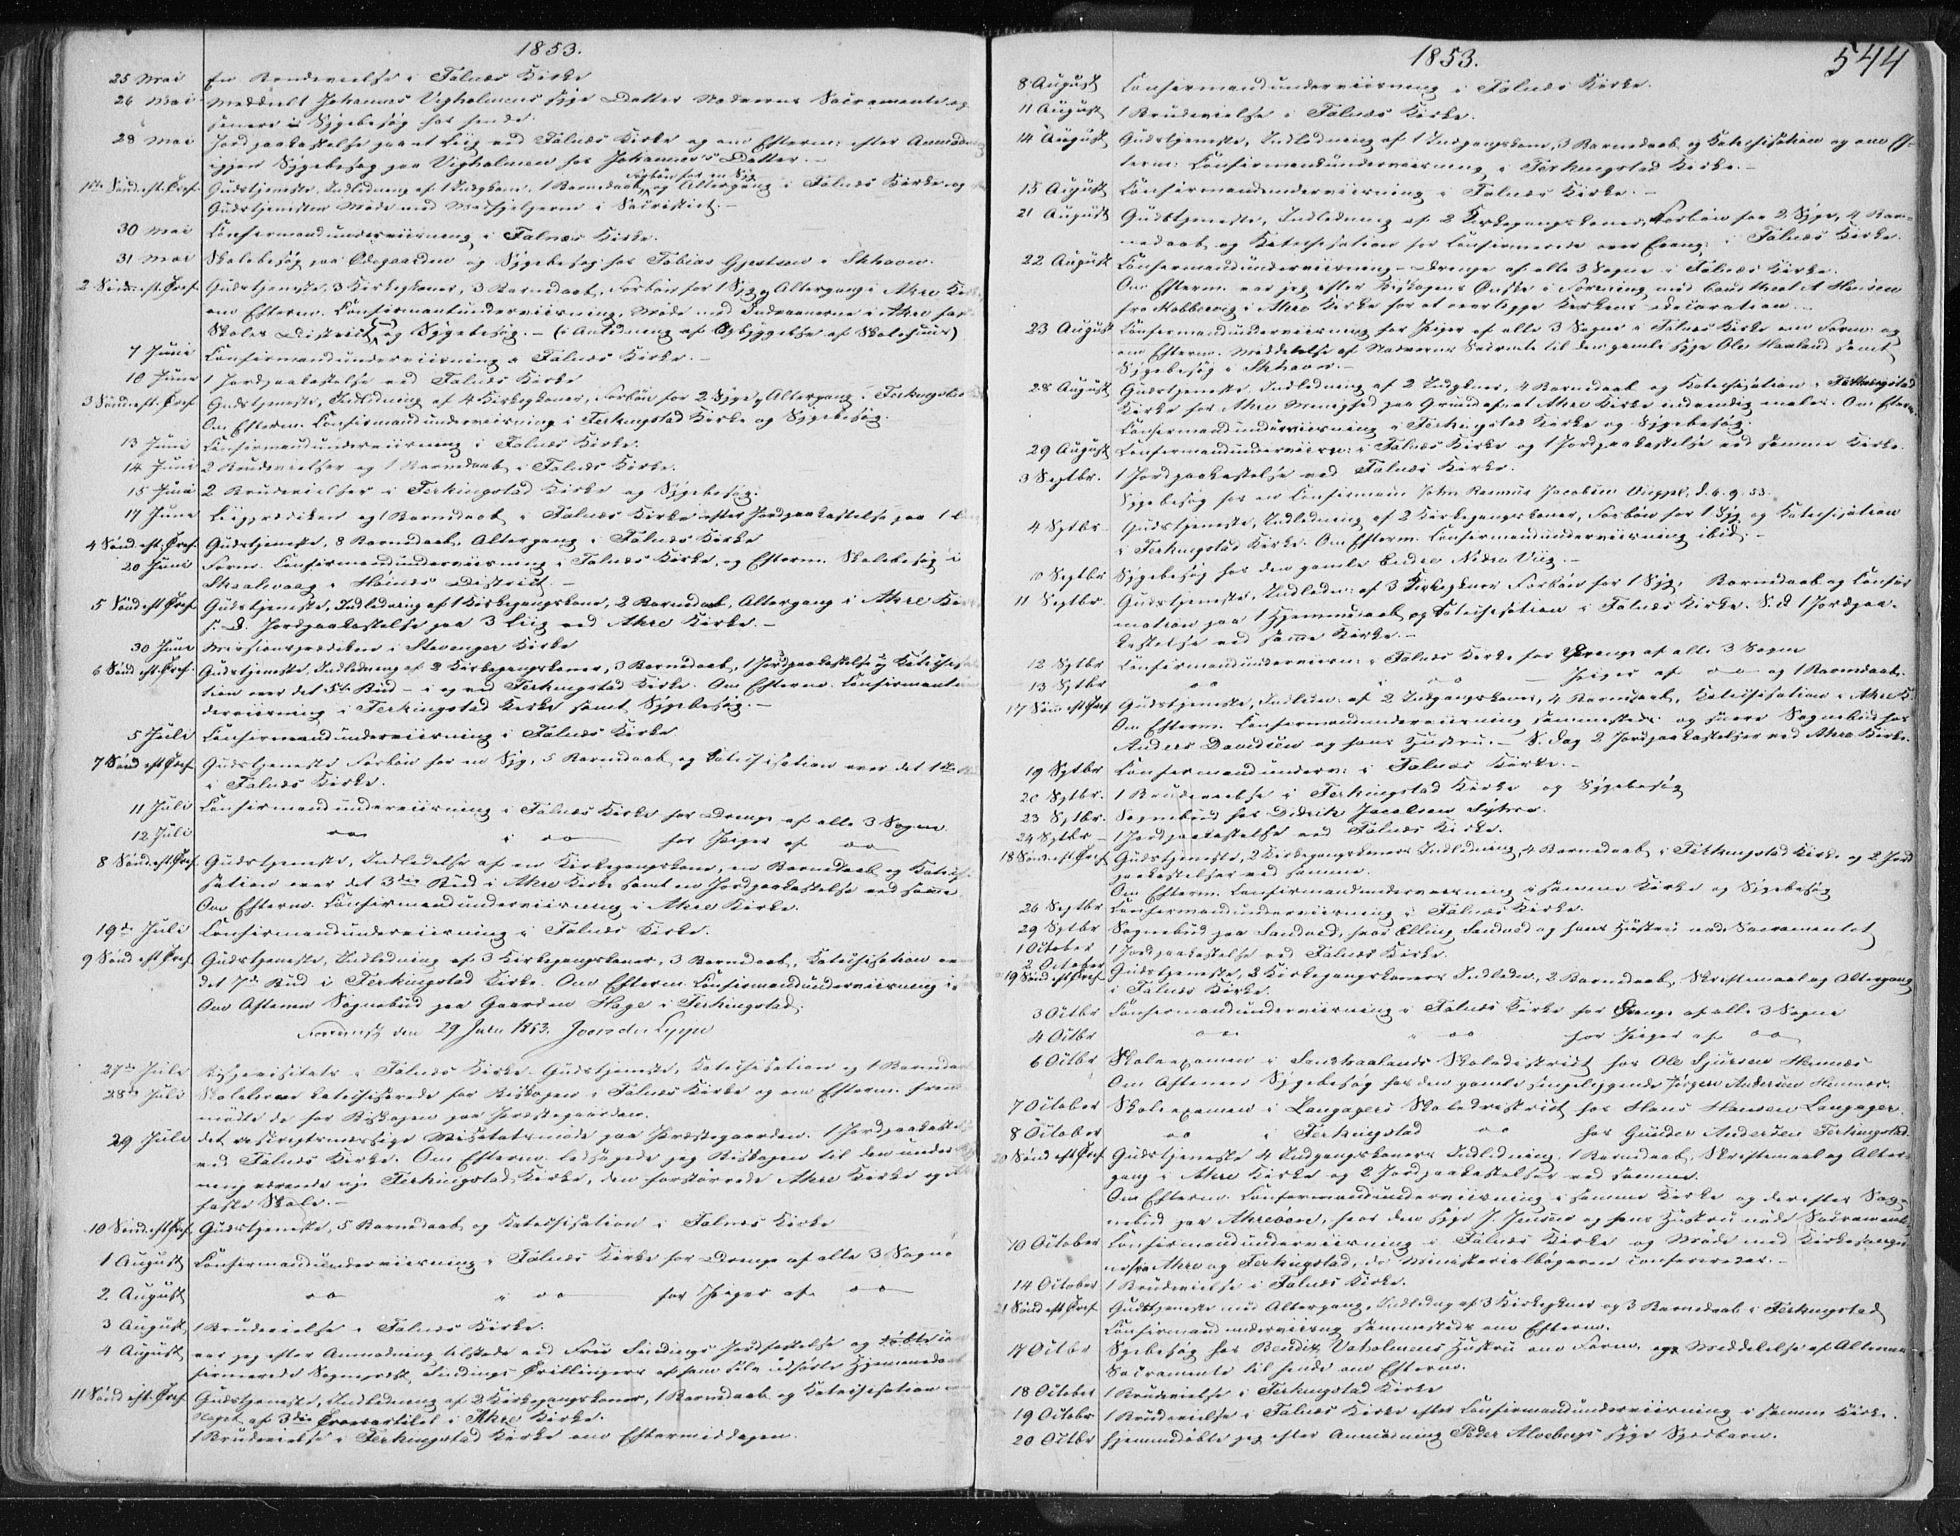 1853.
25 Mai En Brudevielse i Falnæs Kirke
26 Mai Meddeelt Johannes Vigholmens syge Datter Nadverens Sacramente og
senere Sygebesøg hos hende.
28 Mai Jordpaakastelse paa et Liig ved Falnæs Kirke og om Efterm: efter Anmodning
igjen Sygebesøg paa Vigholmen hos Johannes's Datter.
1ste Sønd. eft. Tref. Gudstjeneste, Indledning af 1 Indgkone, 1 Barndaab, Forbøn for en Syg og Altergang i Falnæs Kirke og
Gudstjenesten Møde med Medhjelperne i Sacristiet.
30 Mai Confirmandunderviisning i Falnæs Kirke.
31 Mai Skolebesøg paa Ødegaarden og Sygebesøg hos Tobias Gjertsen i Skhavn.
2 Sønd. eft. Tref. Gudstjeneste, 3 Kirkegkoner, 3 Barnedaab, Forbøn for 1 Syg, Altergang i Ahre Kirke,
om Efterm. Confirmandunderviisning, Møde med Indvaanerne i Ahre faste
Skoles District og Sygebesøg. (i Anledning af Opbyggelse af Skolehuus)
7 Juni Confirmandunderviisning i Falnæs Kirke.
10 Juni 1 Jordpaakastelse ved Falnæs Kirke
3 Sønd. eft. Tref. Gudstjeneste, Indledning af 4 Kirkegkoner, Forbøn for 2 Syge, Altergang i Ferkingstad
Om Efterm. Confirmandunderviisning i Ferkingstad Kirke og Sygebesøg.
13 Juni Confirmandunderviisning i Falnæs Kirke.
14 Juni 2 Brudevielser og 1 Barnedaab i Falnæs Kirke.
15 Juni 2 Brudevielser i Ferkingstad Kirke og Sygebesøg.
17 Juni Liigprædiken og 1 Barnedaab i Falnæs Kirke efter Jordpaakastelse paa 1
4 Sønd. eft. Tref. Gudstjeneste, 8 Barnedaab, Altergang i Falnæs Kirke
20 Juni Form. Confirmandunderviisning i Falnæs Kirke, og Efterm. Skolebesøg i
Skaalevaag i Høines District.
5 Sønd. eft. Tref. Gudstjeneste, Indledning af 1 Kirkegangskone, 2 Barnedaab, Altergang i Ahre Kirke
S. D. Jordpaakastelse paa 3 Liig ved Ahre Kirke.
30 Juni Missionsprædiken i Stavanger Kirke
6 Sønd. eft. Tref. Gudstjeneste, Indledning af 2 Kirkegangskoner, 3 Barnedaab, 1 Jordpaakastelse og Katechisa-
tion over det 5te Bud i og ved Ferkingstad Kirke. Om Efterm. Confirmandun-
derviisning i Ferkingstad Kirke samt Sygebesøg.
5 Juli Confirmandunderviisning i Falnæs Kirke
7 Sønd. eft. Tref. Gudstjeneste Forbøn for en Syg, 5 Barnedaab og Catechisation over det 1ste
i Falnæs Kirke.
11 Juli Confirmandunderviisning i Falnæs Kirke for Drenge af alle 3 Sogne
12 Juli do i do for Piger af do
8 Sønd. eft. Tref. Gudstjeneste, Indledelse af en Kirkegangskone, en Barnedaab og Katechi-
sation over det 3die Bud i Ahre Kirke samt en Jordpaakastelse ved samme
Om Efterm. Confirmandunderviisning i Ahre Kirke.
19de Juli Confirmandunderviisning i Falnæs Kirke.
9 Sønd. eft. Tref. Gudstjeneste, Indledning af 3 Kirkegangskoner, 3 Barnedaab, Katechisation over
det 7de Bud i Ferkingstad Kirke. Om Efterm. Confirmandunderviisning i
Om Aftenen Sognebud paa Gaarden Hage i Ferkingstad.
den 29 Juli 1853. Jens der Lyppe
27de Juli Bispevisitats i Falnæs Kirke. Gudstjeneste, Katechisation og 1 Barnedaab
28de Juli Skolelever catechiserede for Biskopen i Falnæs Kirke og om Efterm. frem-
mødte de for Biskopen paa Præstegaarden.
29 Juli det rescriptsmæssige Visitatsmøde paa Præstegaarden. 1 Jordpaakastelse
ved Falnæs Kirke. Om Efterm. ledsagede jeg Biskopen til den under
ning værende nye Ferkingstad Kirke, den forstørrede Ahre Kirke og
faste Skole.
10 Sønd. eft. Tref. Gudstjeneste, 5 Barnedaab og Katechisation i Falnæs Kirke
1 August Confirmandunderviisning i Falnæs Kirke for Drenge af alle 3 Sogne
2 August do i do for Piger af do
3 August 1 Brudevielse i Falnæs Kirke.
4 August var jeg efter Anmodning tilstede ved Frue Sendings Jordfæstelse og
firmerede Sognepræst Sendings Trillinger af ham selv udførte Hjemmedaab
11 Sønd. eft. Tref. Gudstjeneste, Indledning af 2 Kirkegangskoner, 1 Barnedaab og Katechisation
af 3die Troesartikel i Ahre Kirke.
1 Brudevielse i Ferkingstad Kirke om Eftermiddagen.
1853.
544
8 August Confirmandunderviisning i Falnæs Kirke.
11 August 1 Brudevielse i Falnæs Kirke.
14 August Gudstjeneste, Indledning af 1 Indgangskone, 3 Barnedaab og Katechisation og om Ef-
term: Confirmandunderviisning i Ferkingstad Kirke.
15 August Confirmandunderviisning i Falnæs Kirke.
21 August Gudstjeneste, Indledning af 2 Kirkegangskoner, Forbøn for 2 Syge, 4 Bar-
nedaab og Katechisation for Confirmerede over Evang: i Falnæs Kirke.
22 August Confirmandunderviisning Drenge af alle 3 Sogne i Falnæs Kirke.
Om Efterm. var jeg efter Biskopens Ønske i Forening med Cand theol A Hansen
fra Kobbervig i Ahre Kirke for at overlægge Kirkens Decoration.
23 August Confirmandunderviisning for Piger af alle 3 Sogne i Falnæs Kirke om Form. og
om Efterm. Meddelelse af Nadverens Sacramte til den gamle syge Ole Haaland samt
Sygebesøg i Skhavn.
28 August Gudstjeneste, Indledning af 2 Indgkoner, 4 Barnedaab og Katechisation i Ferkingstad
Kirke for Ahre Menighed paa Grund af, at Ahre Kirke indvendig males. Om Efterm.
Confirmandunderviisning i Ferkingstad Kirke og Sygebesøg.
29 August Confirmandunderviisn: i Falnæs Kirke og 1 Jordpaakastelse ved samme Kirke.
3 Septbr. 1 Jordpaakastelse ved Falnæs Kirke.
Sygebesøg hos en Confirmant John Rasmus Jacobsen d. 6. 9. 53.
4 Sptbr Gudstjeneste, Indledning af 2 Kirkegangskoner, Forbøn for 1 Syg og Katechisation
i Ferkingstad Kirke. Om Efterm. Confirmandunderviisning ibid.
10 Septbr Sygebesøg hos den gamle Endre Nedre Viig.
11 Septbr. Gudstjeneste, Indledn: af 3 Kirkegkoner Forbøn for 1 Syg, Barnedaab og Confir-
mation paa 1 Hjemmedaab og Katechisation i Falnæs Kirke. S. D. 1 Jordpaa-
kastelse ved samme Kirke.
12 Sptbr Confirmandunderviisn: i Falnæs Kirke for Drenge af alle 3 Sogne
13 Sptbr do i do Piger af do og 1 Barnedaab.
17 Sønd. eft Tref. Gudstjeneste, Indledn: af 2 Indgangskoner, 4 Barnedaab, Katechisation i Ahre K.
Om Efterm. Confirmandunderviisning sammesteds og senere Sognebud hos
Anders Davidsen og hans Hustru. S. Dag 2 Jordpaakastelser ved Ahre Kirke.
19 Sptbr Confirmandunderv: i Falnæs Kirke.
20 Sptbr. 1 Brudevielse i Ferkingstad Kirke og Sygebesøg
23 Sptbr. Sognebud hos Didrik Jacobsen Syhre.
24 Sptbr 1 Jordpaakastelse ved Falnæs Kirke.
18 Sønd. eft Tref. Gudstjeneste, 2 Kirkegangskoners Indledning, 4 Barnedaab i Ferkingstad Kirke og 2 Jord-
paakastelser ved samme.
Om Efterm. Confirmandunderviisning i samme Kirke og Sygebesøg
26 Septbr Confirmandunderviisning i Falnæs Kirke.
29 Sptbr Sognebud paa Sandved, hvor Elling Sandved og hans Hustru nøde Sacramentet
1 October 1 Jordpaakastelse ved Falnæs Kirke.
2 October
19 Sønd. eft Tref. Gudstjeneste, 2 Kirkegangskoners Indledn, 2 Barnedaab, Skriftemaal og Altergang
i Falnæs Kirke.
3 Octbr Confirmandunderviisning i Falnæs Kirke for Drenge af alle 3 Sogne
4 Octbr do i do for Piger af do
6 Octbr Skoleexamen i Sandhaalands Skoledistrict hos Ole Sjursen Hemnæs
Om Aftenen Sygebesøg hos den gamle sengeliggende Jørgen Andersen Hemnæs.
7 October Skoleexamen i Langagers Skoledistrict hos Hans Hansen Langager.
8 October do i Ferkingstad do hos Gunder Andersen Ferkingstad.
20 Sønd. eft Tref. Gudstjeneste 4 Indgangskoners Indledning, 1 Barnedaab, Skriftemaal og Alter-
gang i Ahre Kirke og 2 Jordpaakastelser ved samme.
Om Efterm. Confirmandunderviisning i samme Kirke og derefter Sog-
nebud paa Ahreøen, hvor den syge J. Jensen og hans Hustru nøde Sacramentet.
10 October Confirmandunderviisning i Falnæs Kirke og Møde med Kirkesanger-
ne fra Ahre og Ferkingstad, da Ministerialbøgerne confereredes.
14 October 1 Brudevielse i Falnæs Kirke.
21 Sønd. eft Tref. Gudstjeneste med Altergang, Indledng af 3 Kirkegkoner og 3 Barnedaab i Ferkingstad
Confirmandunderviisng sammesteds om Efterm.
17 Octbr Sygebesøg hos Bendix Vaholmens Hustru om Form. og Meddelelse af Alterens
Sacramente til hende om Efterm.
18 October 1 Brudevielse i Ferkingstad Kirke
19 Octobr 1 Brudevielse i Falnæs Kirke efter Confirmandunderviisning i samme Kirke.
20 Octbr hjemmedøbte jeg efter Anmodning Peder Alvebergs syge Spædbarn.